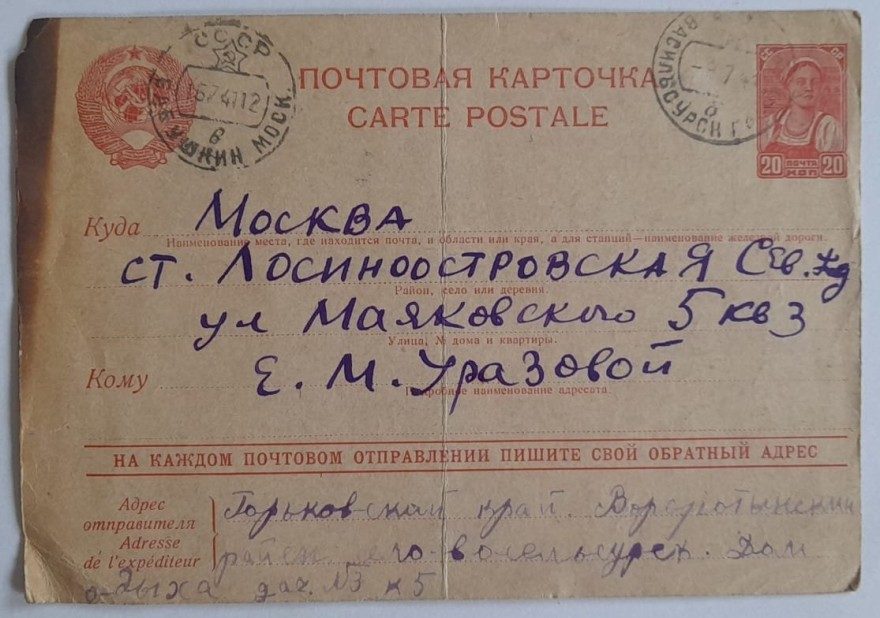 СССР
6741 12
БАБУШКИН МОСК.
в
ВАСИЛЬСУРСК ГО
б
ПОЧТОВАЯ КАРТОЧКА
CARTE POSTALE
20 ПОЧТА 20
КОП
Куда Москва
Наименование места, где находится почта, и области или края, а для станций—наименование железной дороги.
ст. Лосиноостровская Сев. жд
Район, село или деревня.
ул Маяковского 5 кв 3
Улица, № дома и квартиры.
Кому Е. М. Уразовой
Подробное наименование адресата.
НА КАЖДОМ ПОЧТОВОМ ОТПРАВЛЕНИИ ПИШИТЕ СВОЙ ОБРАТНЫЙ АДРЕС
Адрес
отправителя
Adresse
de l'expéditeur
Горьковский край. Воротынский
район Дом
о-дыха дач. №3 к 5